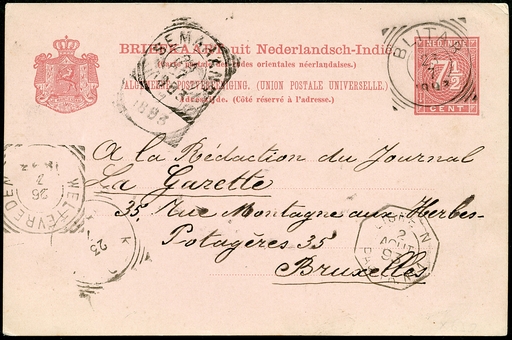 BRIEFKAART uit Nederlandsch-Indië
(Carte postale des Indes orientales néerlandaises.)
ALGEMEENE POSTVEREENIGING. (UNION POSTALE UNIVERSELLE.)
Adreszijde. (Côté réservé à l'adresse.)
NED. INDIE
7½
CENT
SEMARANG
1893
BLITAR
WELTEVREDEN
26
7
K
23
2
AOUT
A la Rédaction du Journal
La Gazette
35, Rue Montagne aux Herbes-
Potagères 35
Bruxelles